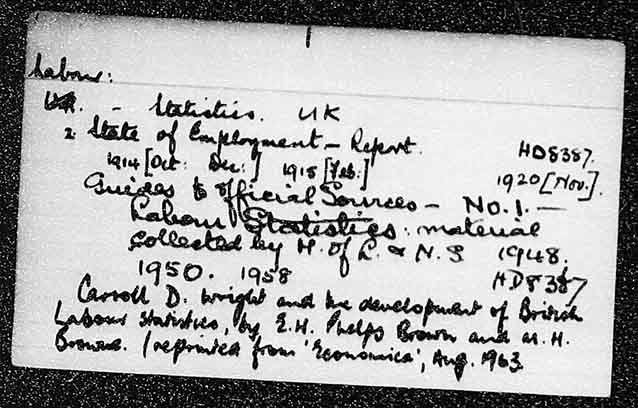 Labour:
UK. - Statistics. UK
2. State of Employment - Report. HD8387.
1914 [Oct: Dec:] 1915 [Feb:] 1920 [Nov.].
Guides to official Sources - No. 1. -
Labour Statistics: material
collected by M. of L. & N. S 1948.
1950. 1958 HD8387
Carroll D. Wright and the development of British
Labour Statistics, by E.H. Phelps Brown and M. H.
Browne. (reprinted from 'Economica', Aug. 1963